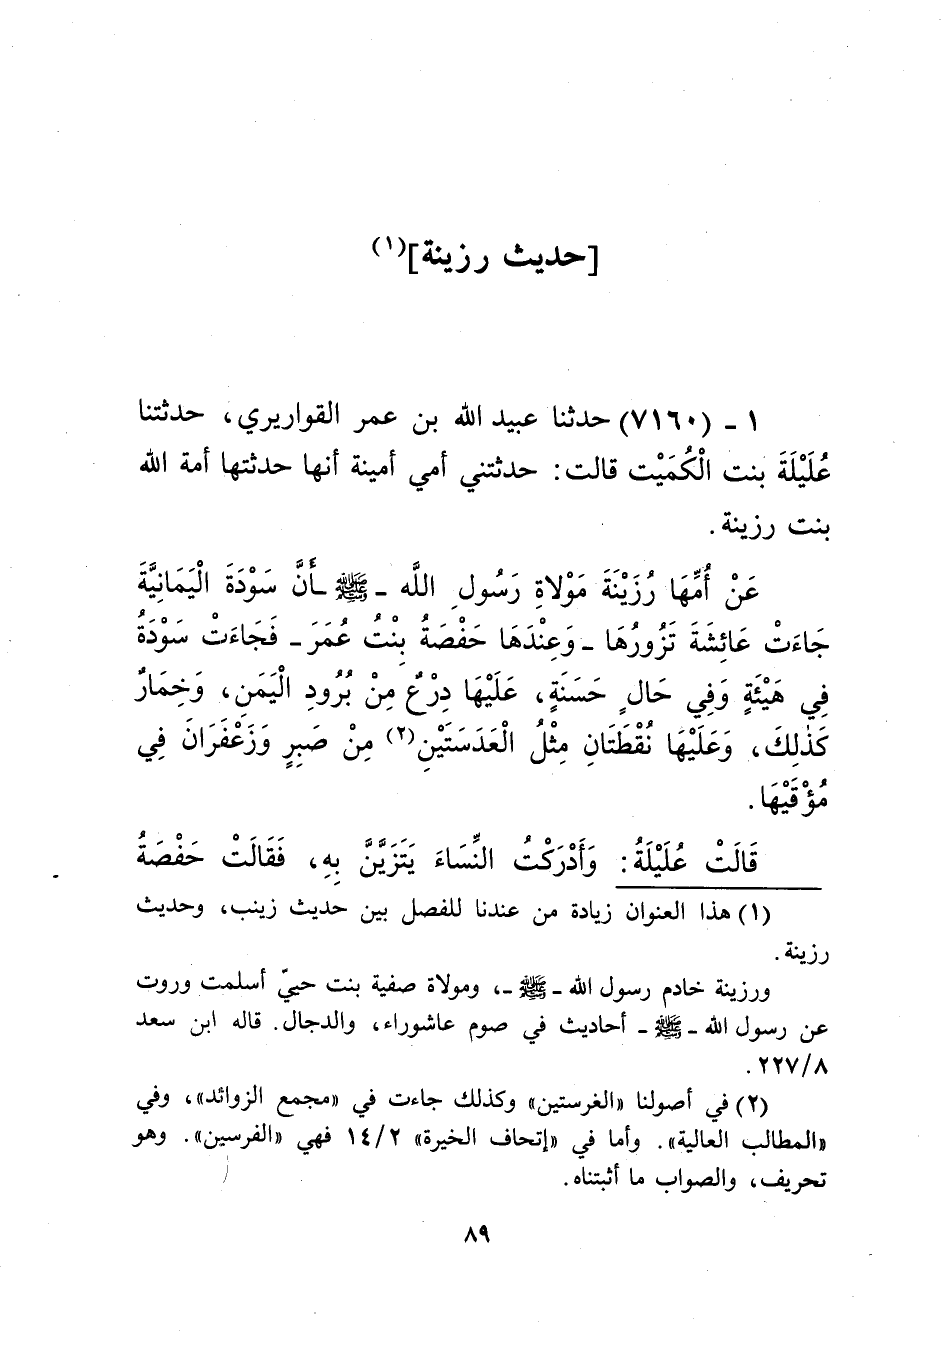 [حديث رزينة](١)
١ ـ (٧١٦٠) حدثنا عبيد الله بن عمر القواريري، حدثتنا
عُلَيْلَةَ بنت الْكُمَيْت قالت: حدثتني أمي أمينة أنها حدثتها أمة الله
بنت رزينة.
عَنْ أُمِّهَا رُزَيْنَةَ مَوْلاةِ رَسُولِ اللَّه ـ ﷺ ـ أَنَّ سَوْدَةَ الْيَمَانِيَّةَ
جَاءَتْ عَائِشَةَ تَزُورُهَا ـ وَعِنْدَهَا حَفْصَةُ بِنْتُ عُمَرَ ـ فَجَاءَتْ سَوْدَةُ
فِي هَيْئَةٍ وَفِي حَالٍ حَسَنَةٍ، عَلَيْهَا دِرْعٌ مِنْ بُرُودِ الْيَمَنِ، وَخِمَارٌ
كَذٰلِكَ، وَعَلَيْهَا نُقْطَتَانِ مِثْلُ الْعَدَسَتَيْنِ(٢) مِنْ صَبِرٍ وَزَعْفَرَانَ فِي
مُؤْقَيْهَا.
قَالَتْ عُلَيْلَةُ: وَأَدْرَكْتُ النِّسَاءَ يَتَزَيَّنَّ بِهِ، فَقَالَتْ حَفْصَةُ
(١) هذا العنوان زيادة من عندنا للفصل بين حديث زينب، وحديث
رزينة.
ورزينة خادم رسول الله ـ ﷺ ـ، ومولاة صفية بنت حييّ أسلمت وروت
عن رسول الله ـ ﷺ ـ أحاديث في صوم عاشوراء، والدجال. قاله ابن سعد
٢٢٧/٨.
(٢) في أصولنا «الغرستين» وكذلك جاءت في «مجمع الزوائد»، وفي
«المطالب العالية». وأما في «إتحاف الخيرة» ١٤/٢ فهي «الفرسين». وهو
تحريف، والصواب ما أثبتناه.
٨٩